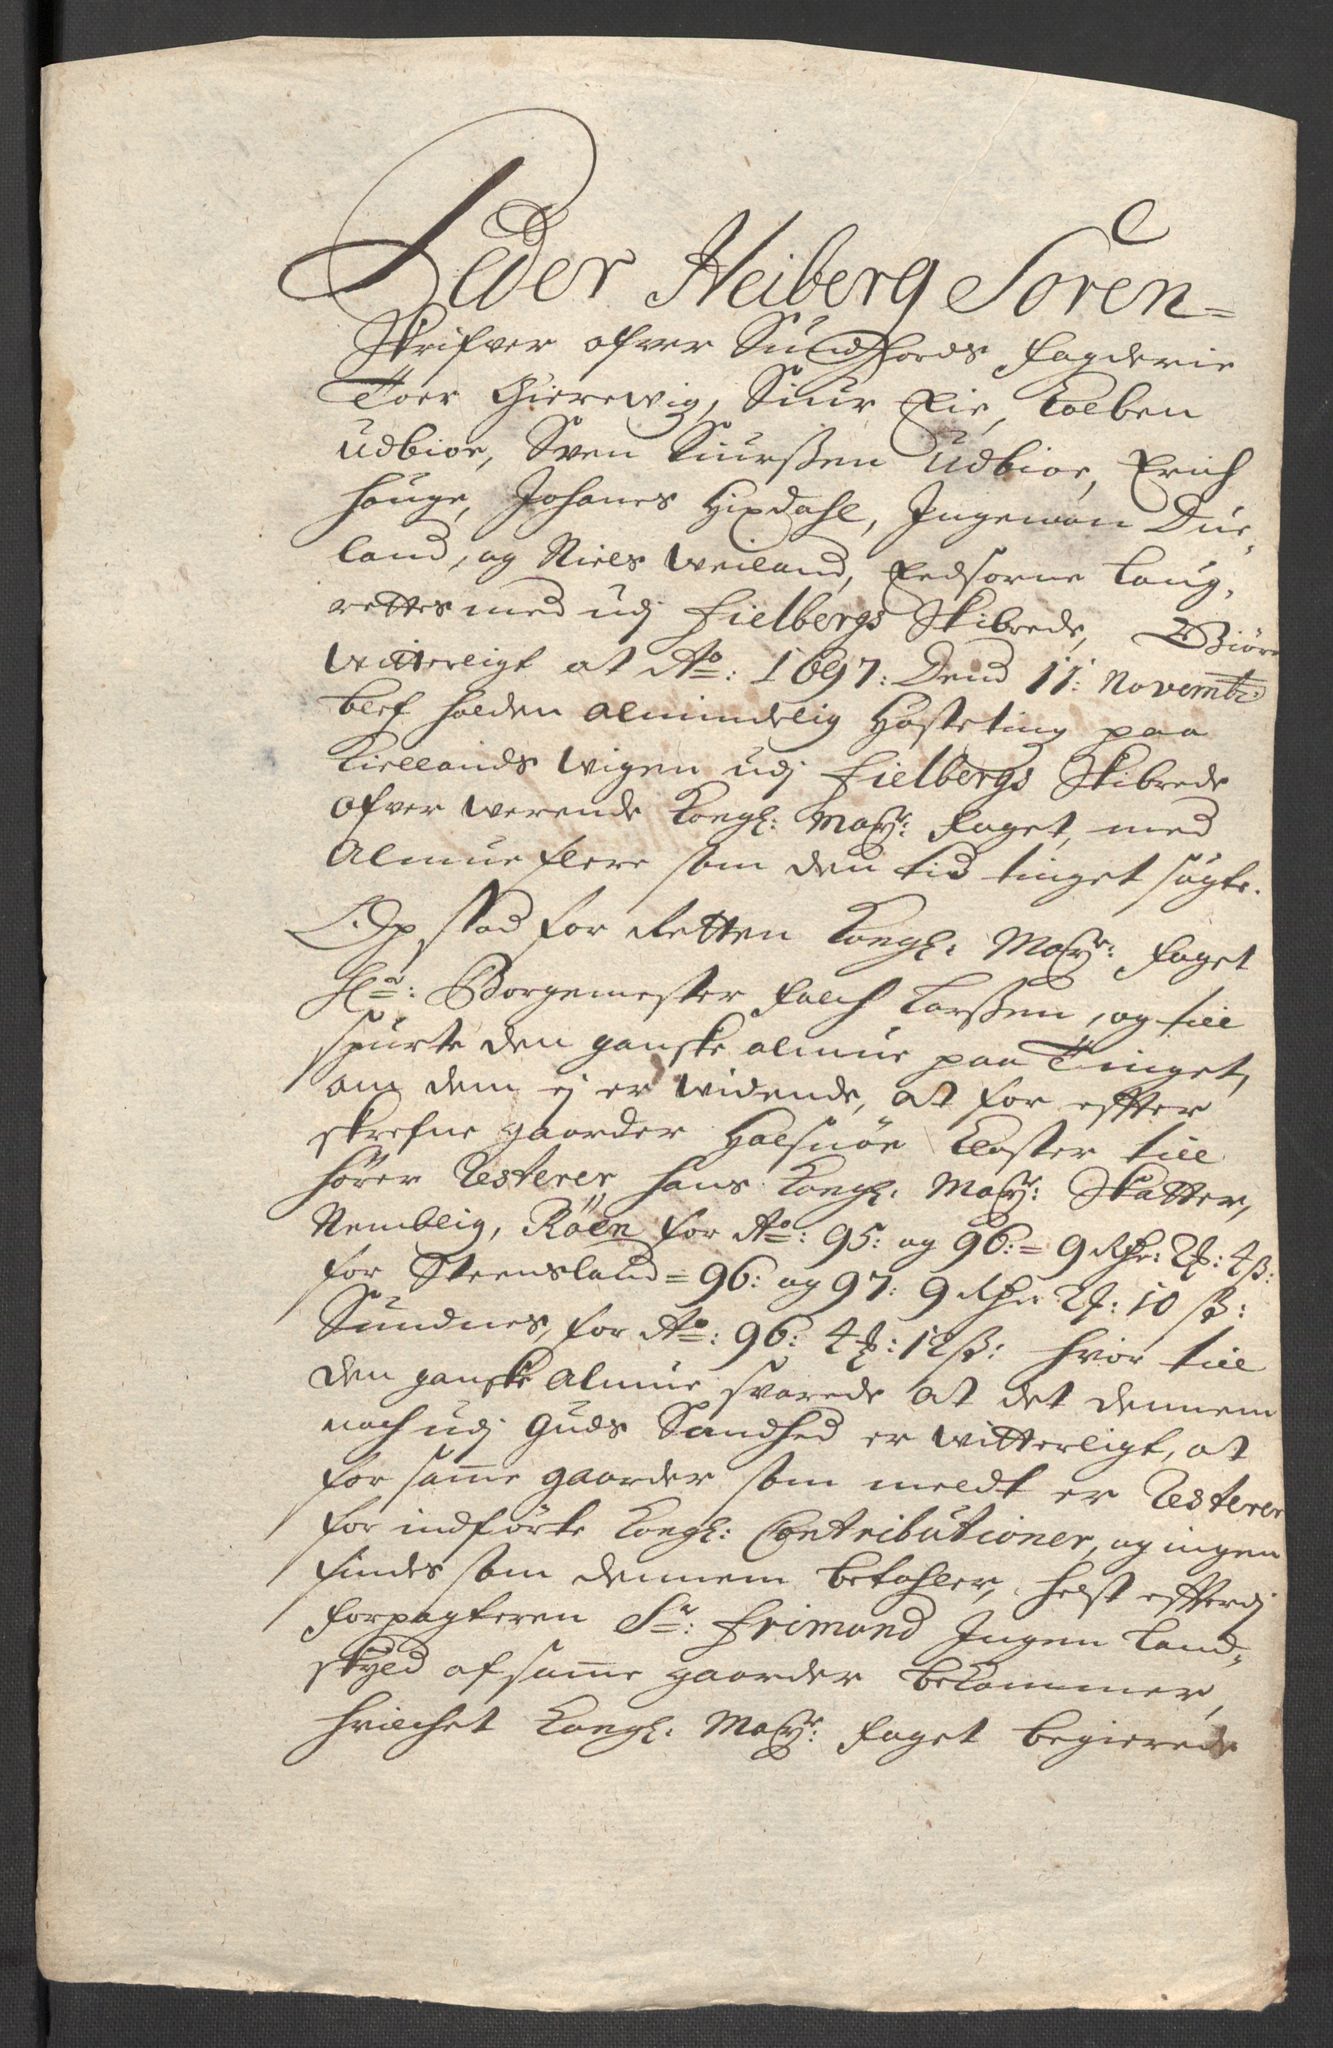 Peder Heiberg Soren=
Skrifver ofver Sundhords fogderie
Toer Gierewig, Siur Eie, Colben
Udbioe, Sven Siurßen Udbioe, Erich
Houge, Johanes Hixdahl, Ingemon Due,
land, og Niels Weiland, Eedsorne Laug,
rettesmed udj Fielbergs Skibrede, Giöre
Witterligt at Ao: 1697: Dend 11: Novembr:
blef holden almindelig Hosteting paa
Kiellands Wigen udj Fielbergs Skibrede
ofver werende Kongl: Mayr: foget, med
Almue flere som den tid tinget søgte.
Op stod for Retten Kongl: Mayr: foget
Hr: Borgemester Falch Larßen, og till
spurte den ganske almue paa Tinget,
om dem ej er widende, at for effter
skrefne gaarder Halsnöe Closter till
hörer Resterer hans Kongl: Mayr: Skatter,
Nemblig, Röen for Ao: 95: og 96: = 9 Rdr: 2 : 4 ß:
for Steensland = 96: og 97: 9 Rdr: 2 : 10 ß:
Sundnes, for Ao: 96: 4 : 12 ß: hvor till
den ganske almue svarede at det dennem
noch udj Guds Sandhed er witterligt, at
for samme gaarder som meldt er Resterer
for indførte Kongl: Contributioner, og ingen
findes som dennem betahler, helst effterdj
forpagteren Sr: Frimand Ingen Land=
skyld af samme gaarder bekommer,
hvilchet Kongl: Mayr: foget begierede